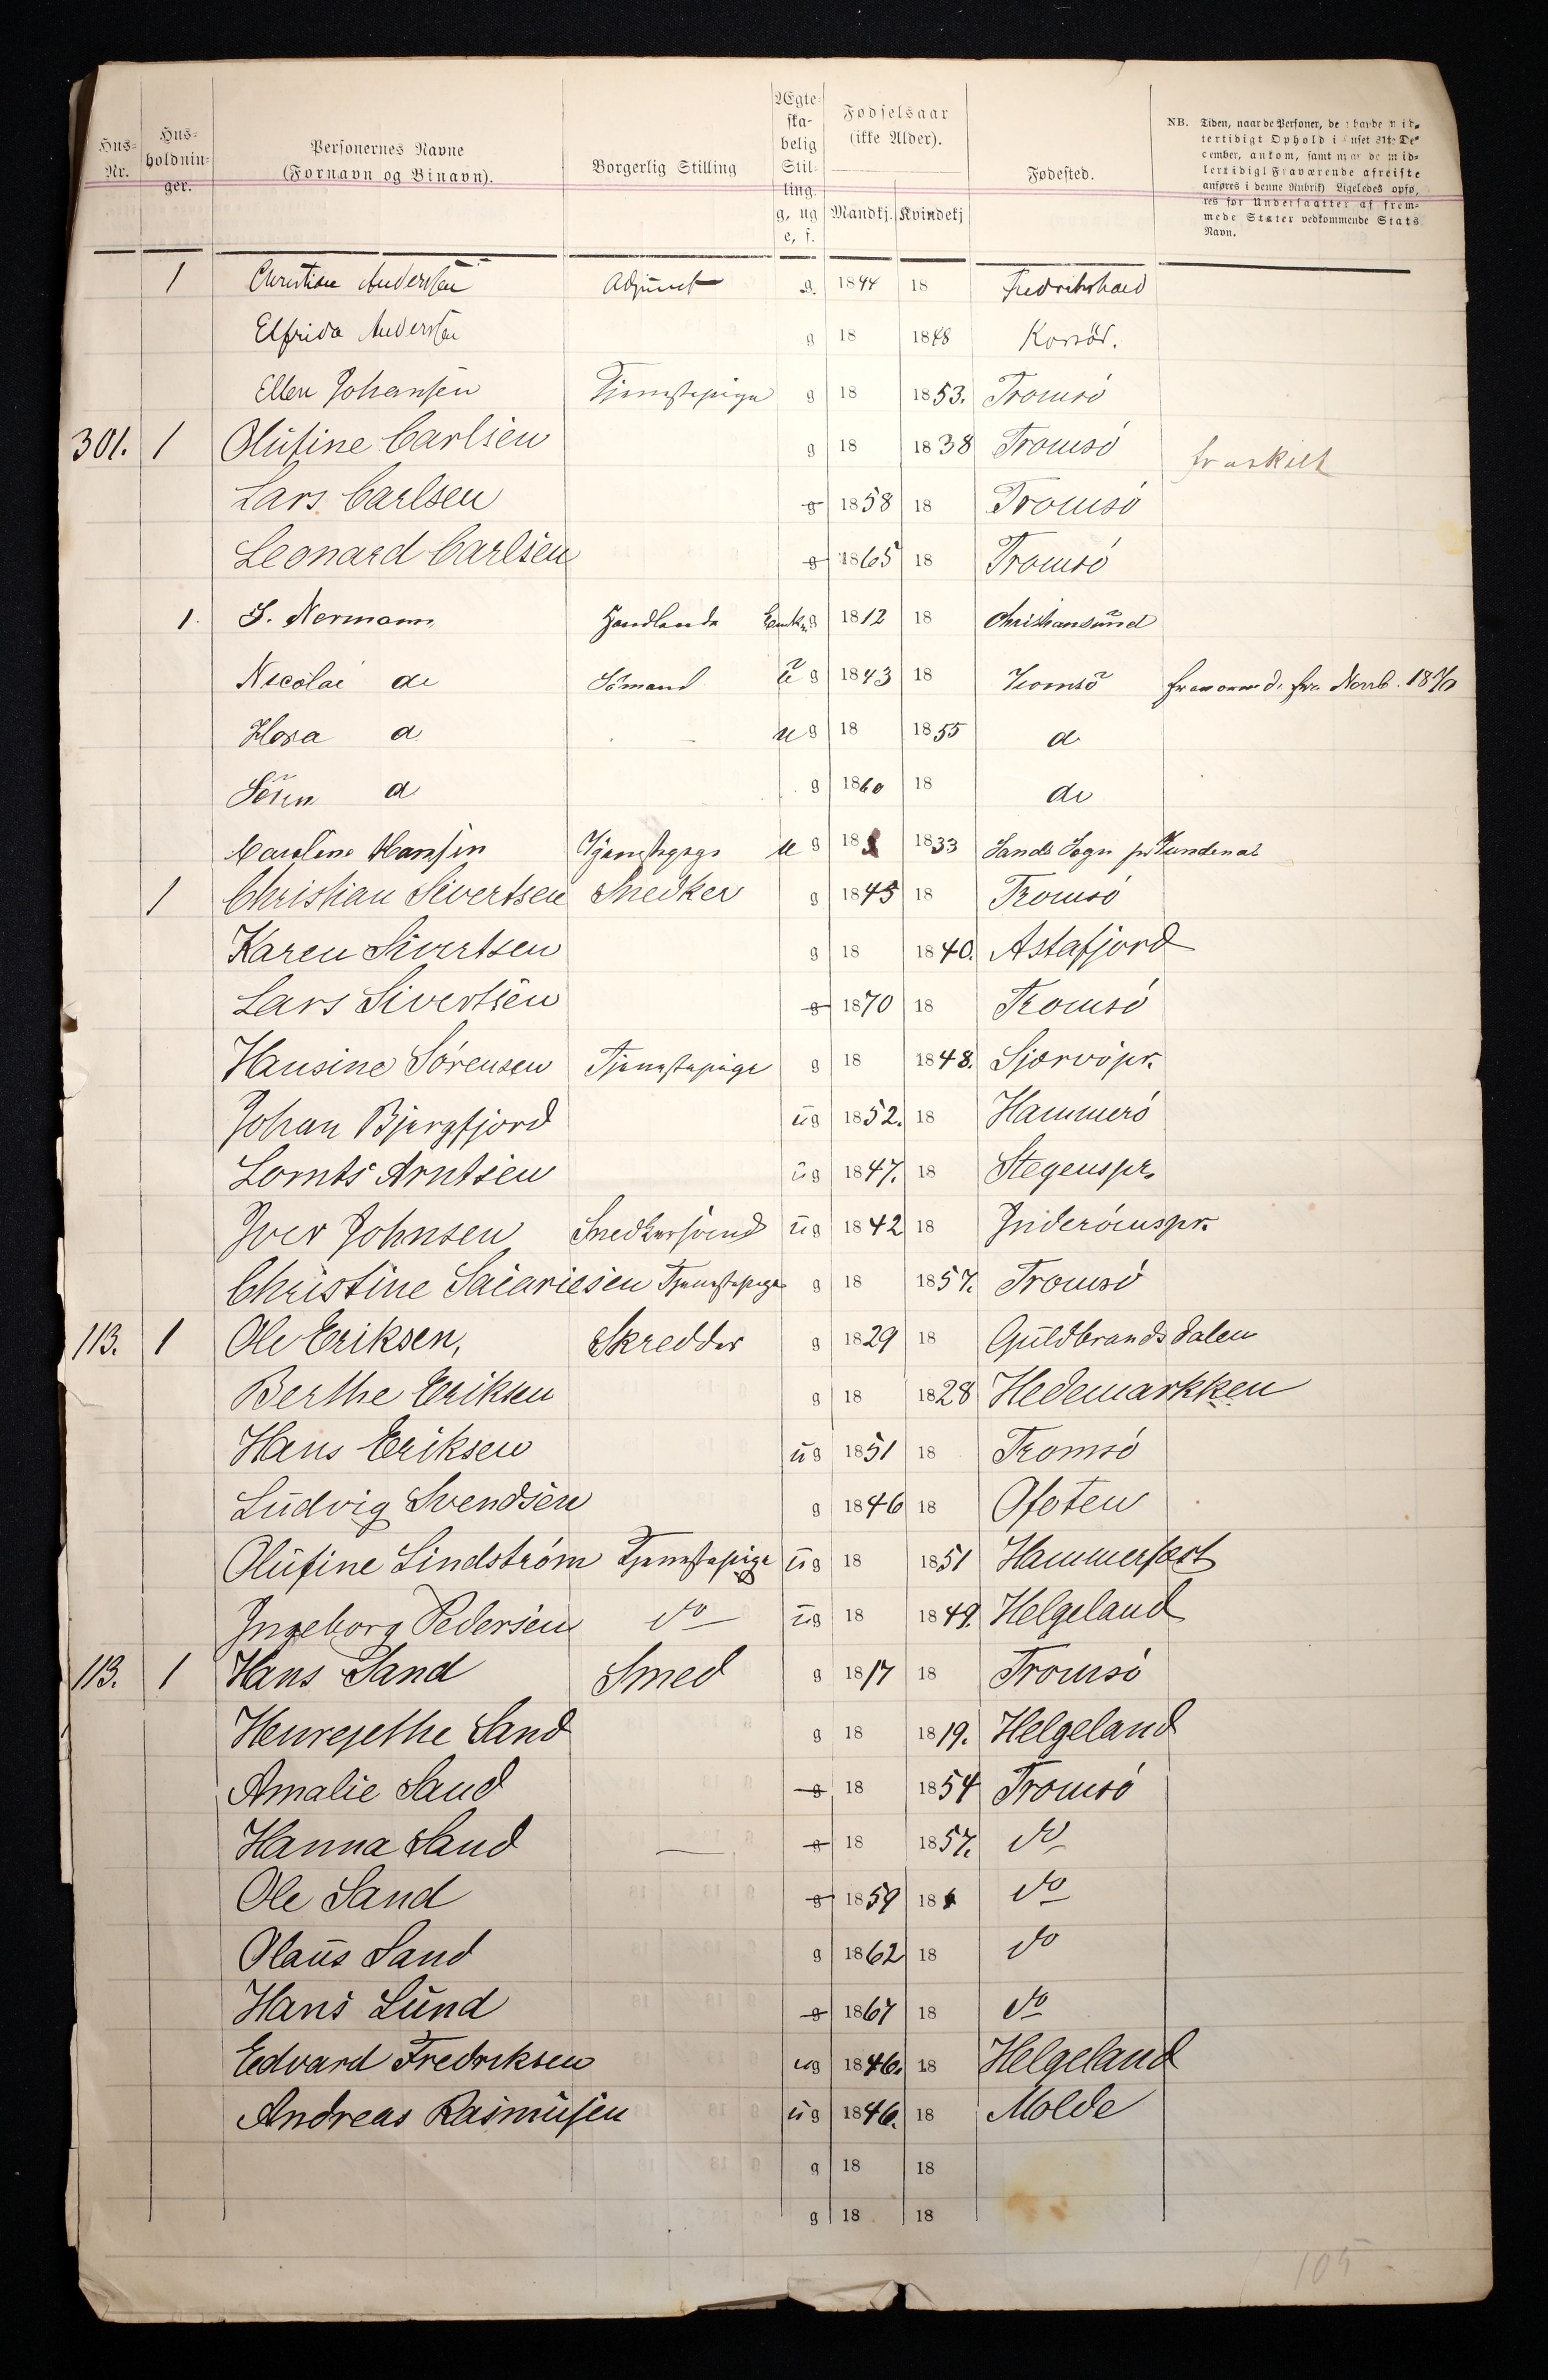 Hus-Nr. Hus-holdnin-ger. Personernes Navne (Fornavn og Binavn). Borgerlig Stilling Ægte-ska-belig Stil-ling. g, ug e, f. Fødselsaar (ikke Alder). Mandkj. Kvindekj Fødested.
NB. Tiden, naar de Personer, de havde mid-
lertidigt Ophold i Huset 31te De-
cember, ankom, samt naar de mid-
lertidigt Fraværende afreiste
anføres i denne Rubrik) Ligeledes opfø,
res for Undersaatter af frem-
mede Stater vedkommende Stats
Navn.
1 Christian Andersen Adjunct g. 1844 18 Fredrikshald
Elfrida Andersen g 18 1848 Korsör.
Ellen Johansen Tjenestepige g 18 1853. Tromsö
301. 1 Olufine Carlsen g 18 1838 Tromsö fraskilt
Lars Carlsen g 1858 18 Tromsö
Leonard Carlsen g 1865 18 Tromsö
1. S. Nermann Handlende Enkm. g 1812 18 Christiansund
Nicolai do Sömand u g 1843 18 Tromsö
Hosa d u g 18 1855 d
Sören d g 1860 18 do
Caroline Hansen u g 18 1833 Sands Sogn
1 Christian Sivertsen Snedker g 1845 18 Tromsö
Karen Sivertsen g 18 1840. Astafjord
Lars Sivertsen g 1870 18 Tromsö
Hansine Sörensen Tjenestepige g 18 1848. Sjærvöpr.
Johan Bjergfjord ug 1852. 18 Hammerö
Lornts Arntsen ug 1847. 18 Stegenspr.
Iver Johnsen Snedkersvend ug 1842 18 Inderöenspr.
Christine Saiariesen Tjenestepige g 18 1857. Tromsö
113. 1 Ole Eriksen, Skredder g 1829 18 Guldbrandsdalen
Berthe Eriksen g 18 1828 Hedemarkken
Hans Eriksen ug 1851 18 Tromsö
Ludvig Svendsen g 1846 18 Ofoten
Olufine Lindström Tjenestepige ug 18 1851 Hammerfest
Ingeborg Pedersen do ug 18 1849. Helgeland
113. 1 Hans Sand Smed g 1817 18 Tromsö
Henrejethe Sand g 18 1819. Helgeland
Amalie Sand g 18 1854 Tromsö
Hanna Sand — g 18 1857. do
Ole Sand g 1859 18 do
Olaus Sand g 1862 18 do
Hans Lund g 1867 18 do
Edvard Fredriksen ug 1846. 18 Helgeland
Andreas Rasmusen ug 1846. 18 Molde
g 18 18
g 18 18
105